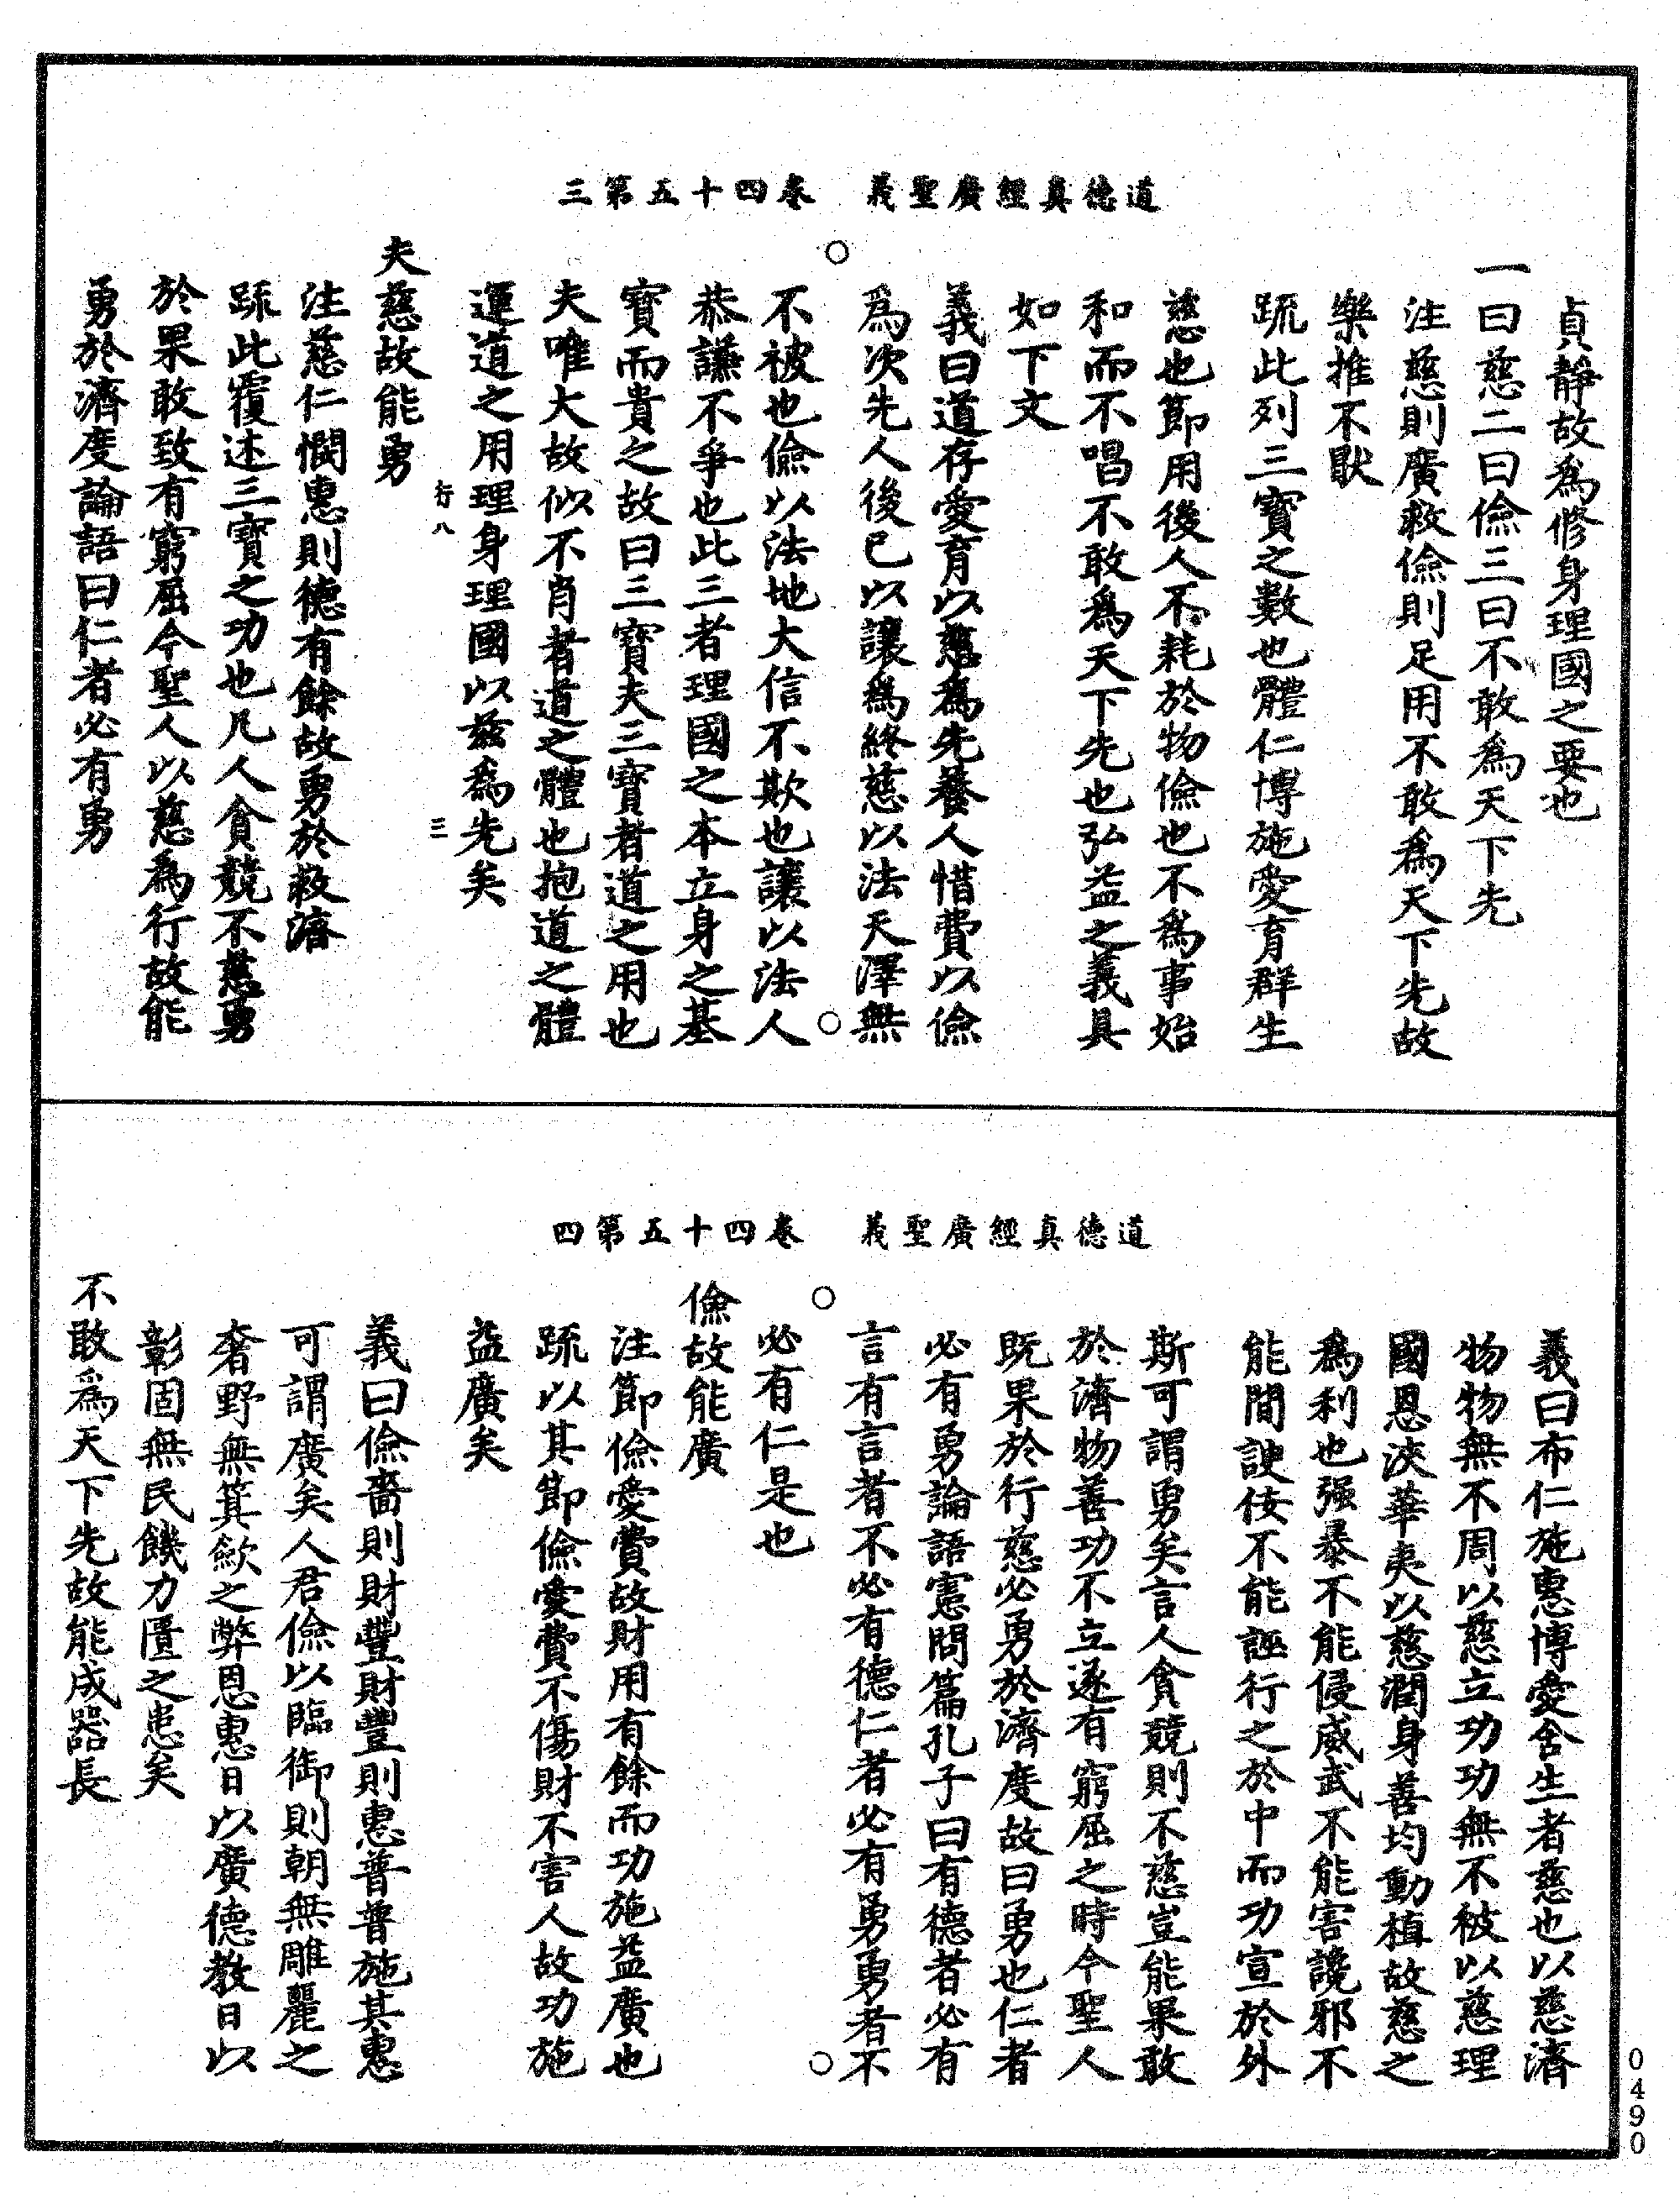 道德真經廣聖義　卷四十五第三
貞靜故爲修身理國之要也
一曰慈二曰儉三曰不敢爲天下先
注慈則廣救儉則足用不敢爲天下先故
樂推不猒
疏此列三寶之數也體仁博施愛育群生
慈也節用後人不耗於物儉也不爲事始
和而不唱不敢爲天下先也弘益之義具
如下文
義曰道存愛育以慈爲先養人惜費以儉
爲次先人後已以讓爲終慈以法天澤無
不被也儉以法地大信不欺也讓以法人
恭謙不爭也此三者理國之本立身之基
寶而貴之故曰三寶夫三寶者道之用也
夫唯大故似不肖者道之體也抱道之體
運道之用理身理國以兹爲先矣
行八　三
夫慈故能勇
注慈仁憫惠則德有餘故勇於救濟
疏此覆述三寶之功也凡人貪競不慈勇
於果敢致有窮屈今聖人以慈爲行故能
勇於濟度論語曰仁者必有勇
道德真經廣聖義　卷四十五第四
義曰布仁施惠博愛含生者慈也以慈濟
物物無不周以慈立功功無不被以慈理
國恩浹華夷以慈潤身善均動植故慈之
爲利也强暴不能侵威武不能害讒邪不
能間諛佞不能誣行之於中而功宣於外
斯可謂勇矣言人貪競則不慈豈能果敢
於濟物善功不立遂有窮屈之時今聖人
既果於行慈必勇於濟度故曰勇也仁者
必有勇論語憲問篇孔子曰有德者必有
言有言者不必有德仁者必有勇勇者不
必有仁是也
儉故能廣
注節儉愛費故財用有餘而功施益廣也
疏以其節儉愛費不傷財不害人故功施
益廣矣
義曰儉嗇則財豐財豐則惠普普施其惠
可謂廣矣人君儉以臨御則朝無雕麗之
奢野無箕歛之弊恩惠日以廣德教日以
彰固無民饑力匱之患矣
不敢爲天下先故能成器長
0490